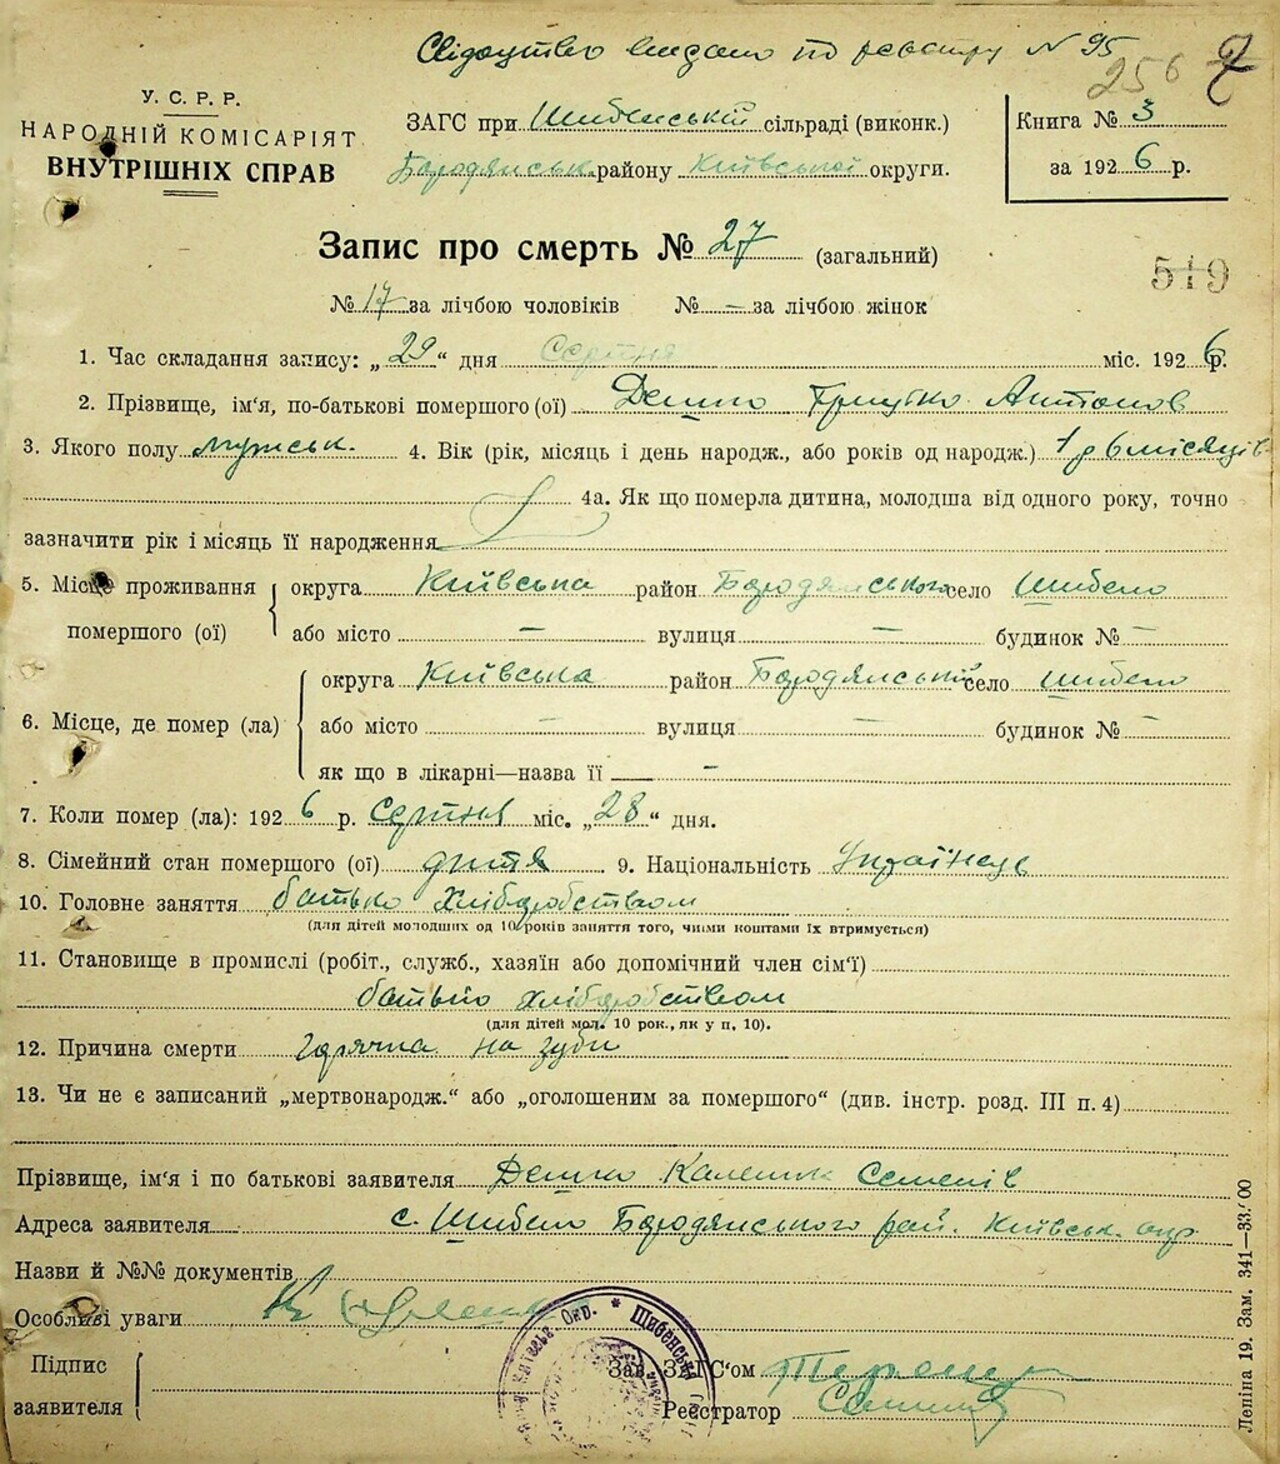 Свідоцтво видано по реєстру № 95
256
У. С. Р. Р.
НАРОДНІЙ КОМІСАРІЯТ
ВНУТРІШНІХ СПРАВ
ЗАГС при Шибенській сільраді (виконк.)
Бородянськ. району Київської округи.
Книга № 3
за 1926 р.
Запис про смерть № 27 (загальний)
519
№ 17 за лічбою чоловіків № — за лічбою жінок
1. Час складання запису: „29“ дня Серпня міс. 1926 р.
2. Прізвище, ім‘я, по-батькові помершого (ої) Дешко Грицько Антонов
3. Якого полу мужськ. 4. Вік (рік, місяць і день народж., або років од народж.) 1 р 6 місяців
4а. Як що померла дитина, молодша від одного року, точно
зазначити рік і місяць її народження
5. Місце проживання помершого (ої)
округа Київська район Бородянського село Шибено
або місто — вулиця — будинок № —
6. Місце, де помер (ла)
округа Київська район Бородянський село Шибено
або місто — вулиця — будинок № —
як що в лікарні—назва її —
7. Коли помер (ла): 1926 р. Серпня міс. „28“ дня.
8. Сімейний стан помершого (ої) дитя 9. Національність Українець
10. Головне заняття батько Хліборобством
(для дітей молодших од 10 років заняття того, чиїми коштами їх втримується)
11. Становище в промислі (робіт., служб., хазяїн або допомічний член сім‘ї)
батько хліборобством
(для дітей мол. 10 рок., як у п. 10).
12. Причина смерти горячка на зуби
13. Чи не є записаний „мертвонародж.“ або „оголошеним за помершого“ (див. інстр. розд. III п. 4)
Прізвище, ім‘я і по батькові заявителя Дешко Каленик Семенів
Адреса заявителя с. Шибено Бородянського рай. Київськ. окр
Назви й №№ документів
Особливі уваги
Підпис заявителя
Київськ. Окр. * Шибенськ
Зав. ЗАГС‘ом
Реєстратор
Леніна 19. Зам. 341—33.